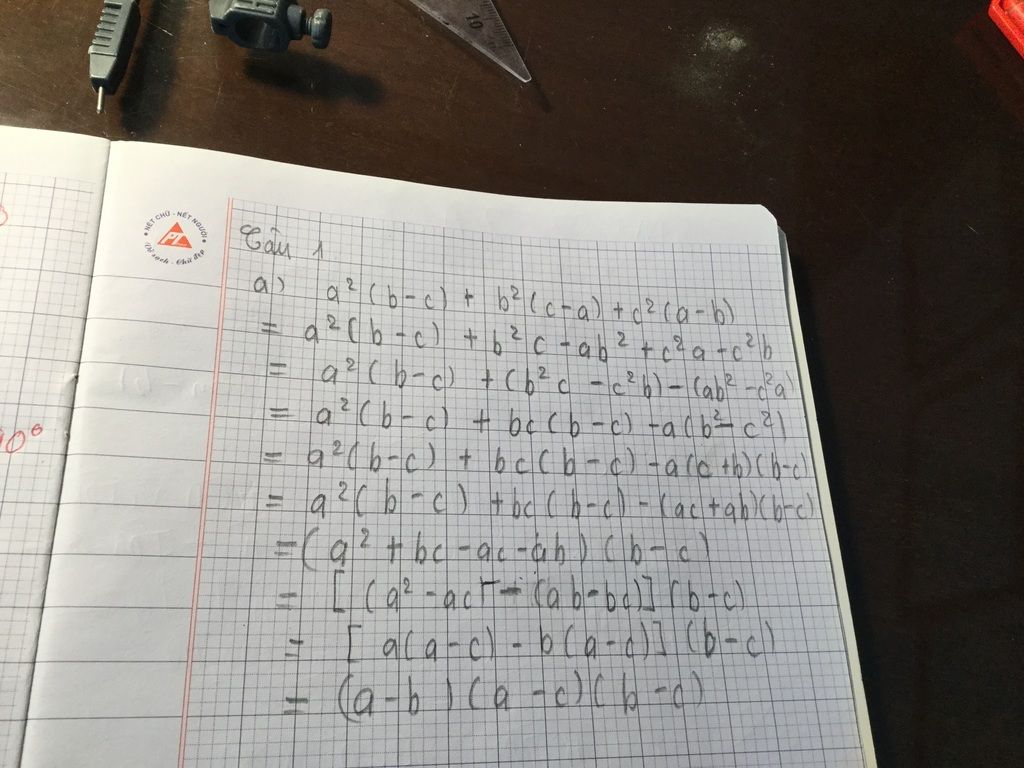 10
NÉT CHỮ - NẾT NGƯỜI
PL
Vở sạch - Chữ đẹp
Câu 1
a) a²(b-c) + b²(c-a) + c²(a-b)
= a²(b-c) + b²c - ab² + c²a - c²b
= a²(b-c) + (b²c - c²b) - (ab² - c²a)
= a²(b-c) + bc(b-c) - a(b² - c²)
= a²(b-c) + bc(b-c) - a(c+b)(b-c)
= a²(b-c) + bc(b-c) - (ac+ab)(b-c)
= (a² + bc - ac - ab)(b-c)
= [(a² - ac) - (ab - bc)](b-c)
= [a(a-c) - b(a-c)](b-c)
= (a-b)(a-c)(b-c)